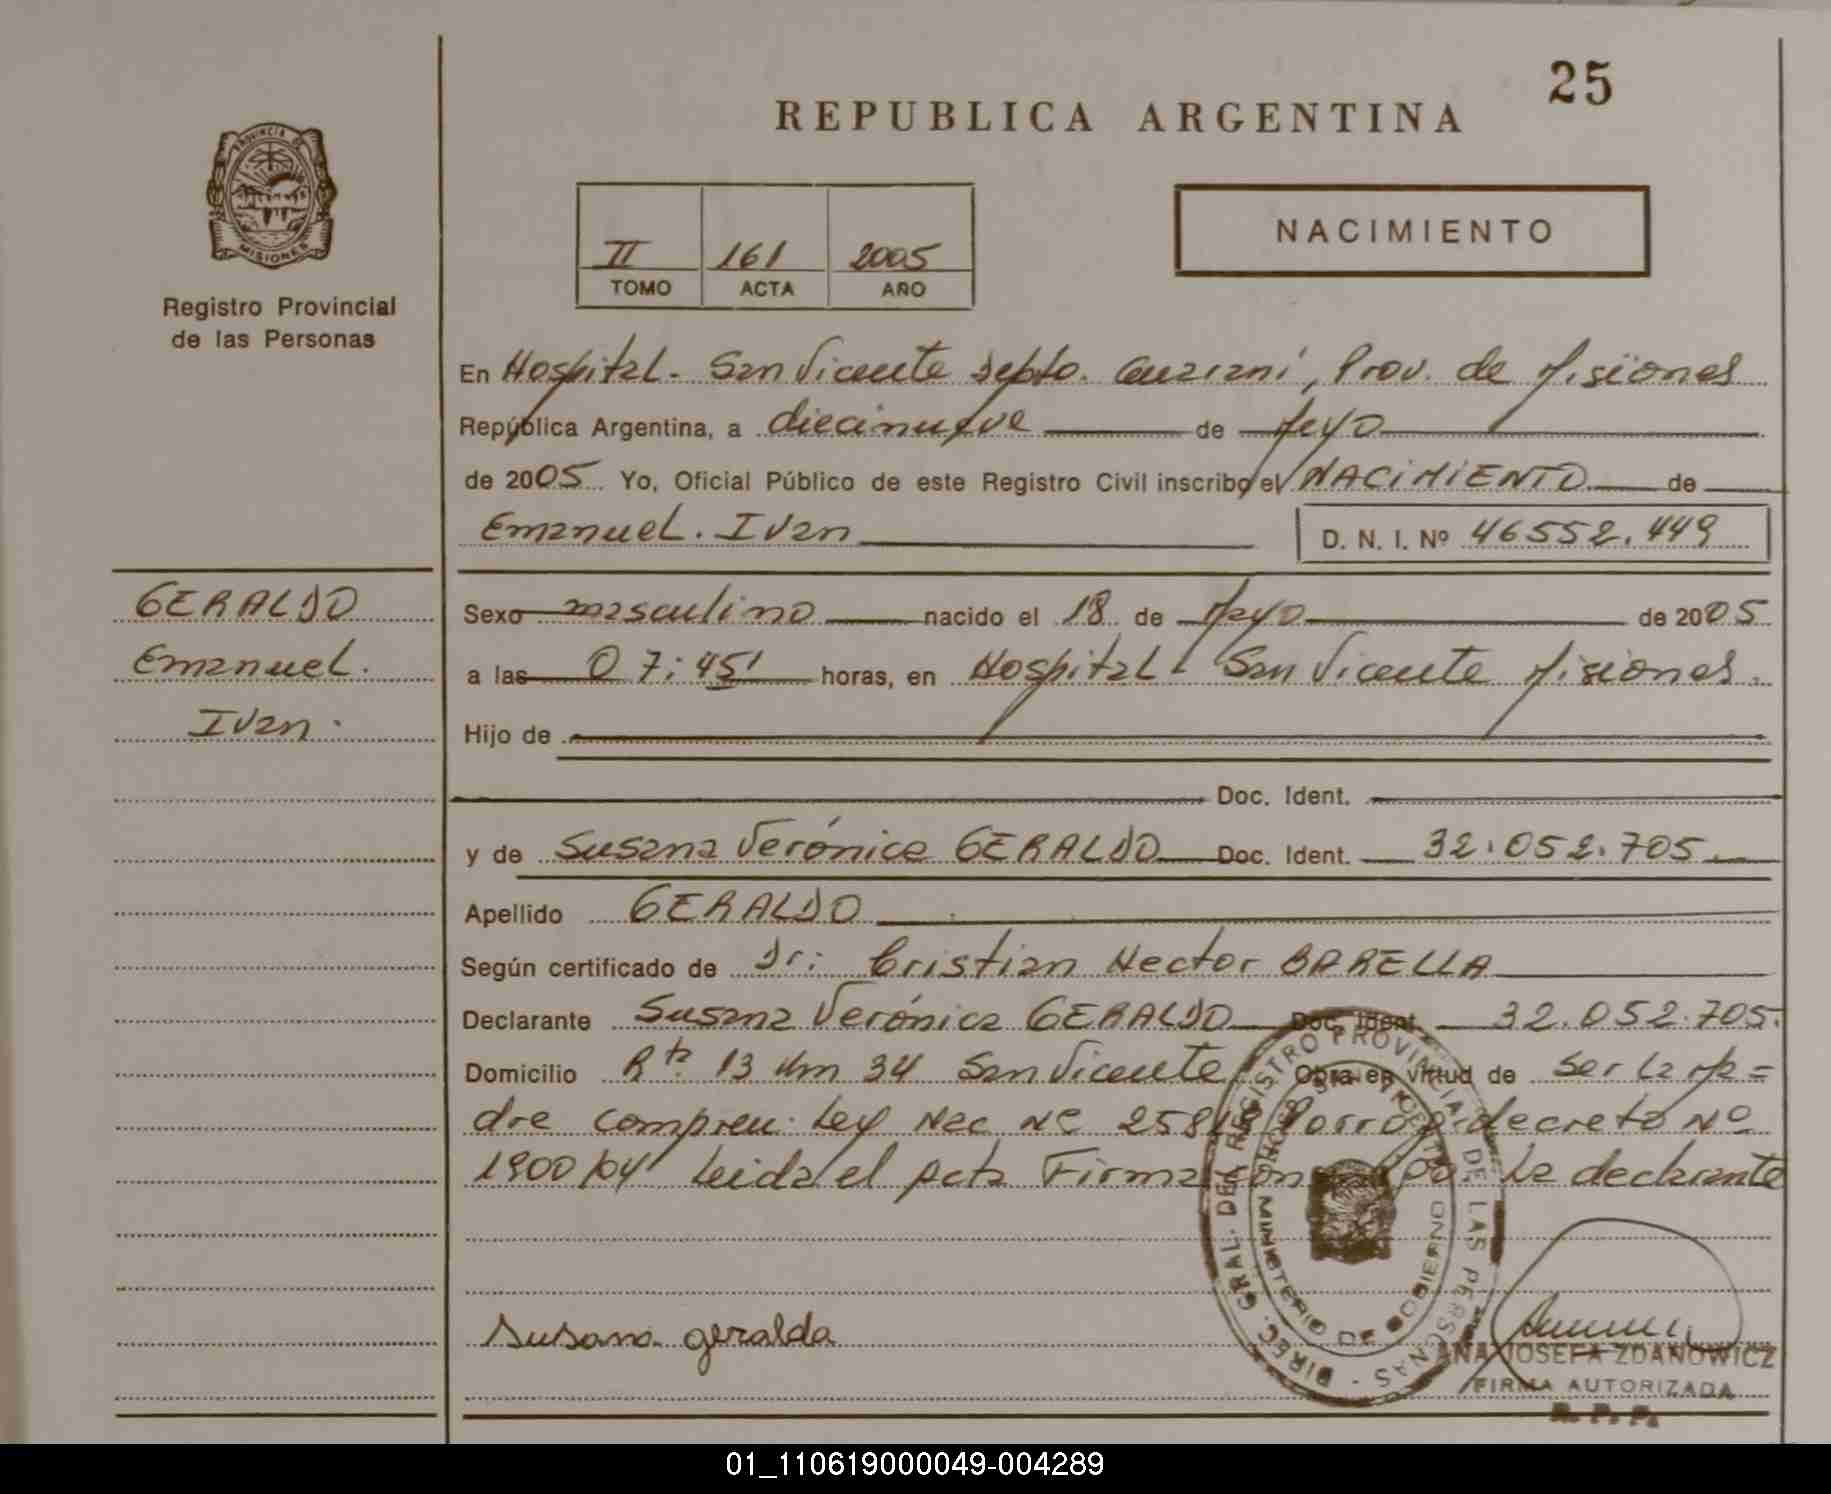 25
REPUBLICA ARGENTINA
PROVINCIA DE
MISIONES
Registro Provincial
de las Personas
II 161 2005
TOMO ACTA AÑO
NACIMIENTO
En Hospital. San Vicente Depto. Guaraní, Prov. de Misiones
República Argentina, a diecinueve de Mayo
de 2005 Yo, Oficial Público de este Registro Civil inscribo el NACIMIENTO de
Emanuel. Ivan D. N. I. Nº 46552.449
GERALDO
Emanuel.
Ivan.
Sexo masculino nacido el 18 de Mayo de 2005
a las 07:45' horas, en Hospital - San Vicente Misiones.
Hijo de
Doc. Ident.
y de Susana Verónica GERALDO Doc. Ident. 32.052.705.
Apellido GERALDO
Según certificado de Dr: Cristian Hector BARELLA
Declarante Susana Verónica GERALDO Doc. Ident. 32.052.705.
Domicilio Rta 13 Km 34 San Vicente Obra en virtud de ser la ma=
dre compren. Ley Nac Nº decreto Nº
1900/04 Leida el Acta Firma la declarante
Susana geralda
DIREC. GRAL. DEL REGISTRO PROVINCIAL DE LAS PERSONAS
MINISTERIO DE GOBIERNO
ANA JOSEFA ZDANOWICZ
FIRMA AUTORIZADA
R. P. P.
01_110619000049-004289